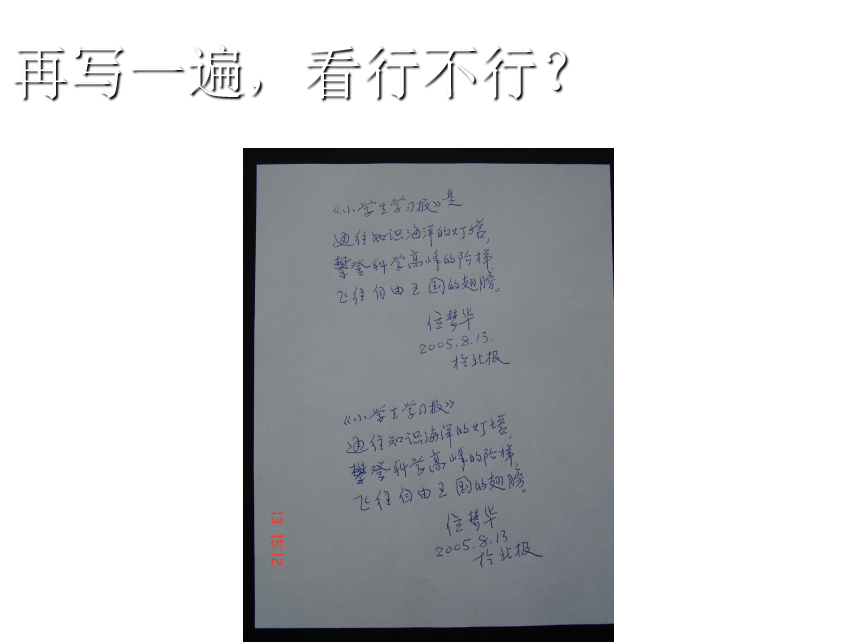 再写一遍，看行不行？
《小学生学习报》是
通往知识海洋的灯塔，
攀登科学高峰的阶梯，
飞往自由王国的翅膀。
位梦华
2005.8.13.
于北极
《小学生学习报》
通往知识海洋的灯塔，
攀登科学高峰的阶梯，
飞往自由王国的翅膀。
位梦华
2005.8.13
于北极
13 15:12